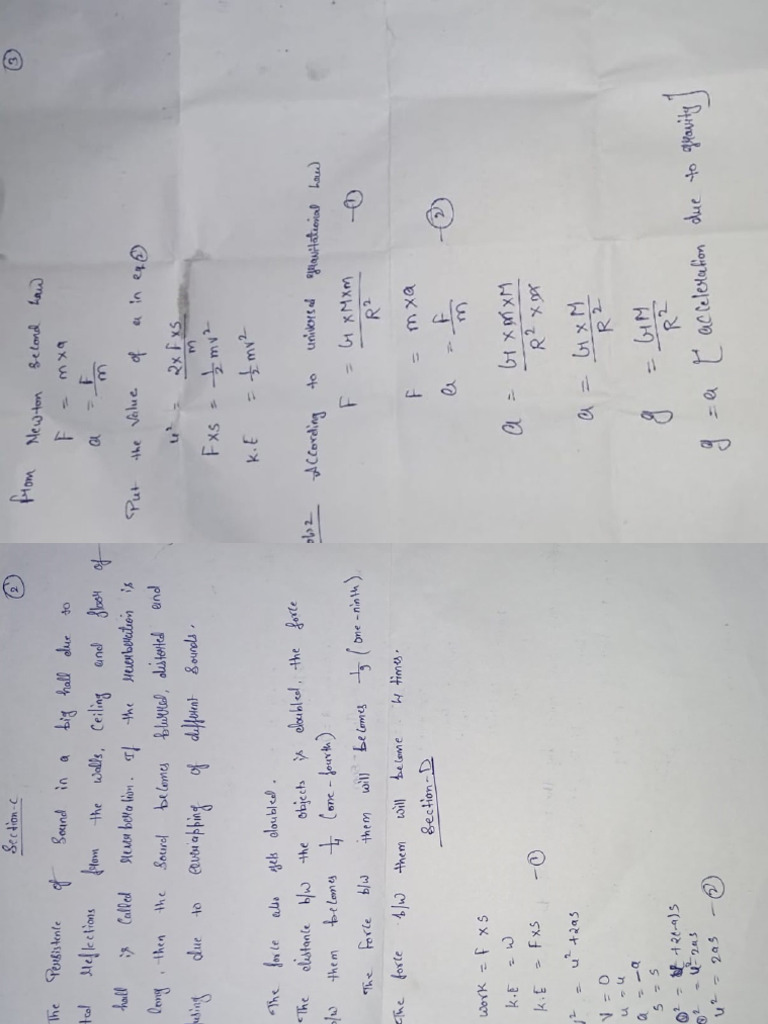 ②
Section-C
The Persistence of Sound in a big hall due to
ted reflections from the walls, Ceiling and floor of
hall is Called reverberation. If the reverberation is
long, then the Sound becomes blurred, distorted and
using due to overapping of different Sounds.
The force also gets doubled.
The distance b/w the objects is doubled, the force
b/w them becomes 1/4 (one-fourth)
The force b/w them will becomes 1/9 (one-ninth)
The force b/w them will become 4 times.
Section-D
work = F x S
K.E = W
K.E = F x S —①
V² = u² + 2as
V = 0
u = u
a = -a
S = S
0² = u² + 2(-a)S
0² = u² - 2as
u² = 2as —②
③
from Newton Second Law
F = m x a
a = F/m
Put the value of a in eq②
u² = 2 x F x S/m
F x S = 1/2 mv²
K.E = 1/2 mv²
According to universal gravitational Law
F = G x M x m/R² —①
F = m x a
a = F/m —②
a = G x m x M/R² x m
a = G x M/R²
g = GM/R²
g = a [acceleration due to gravity]